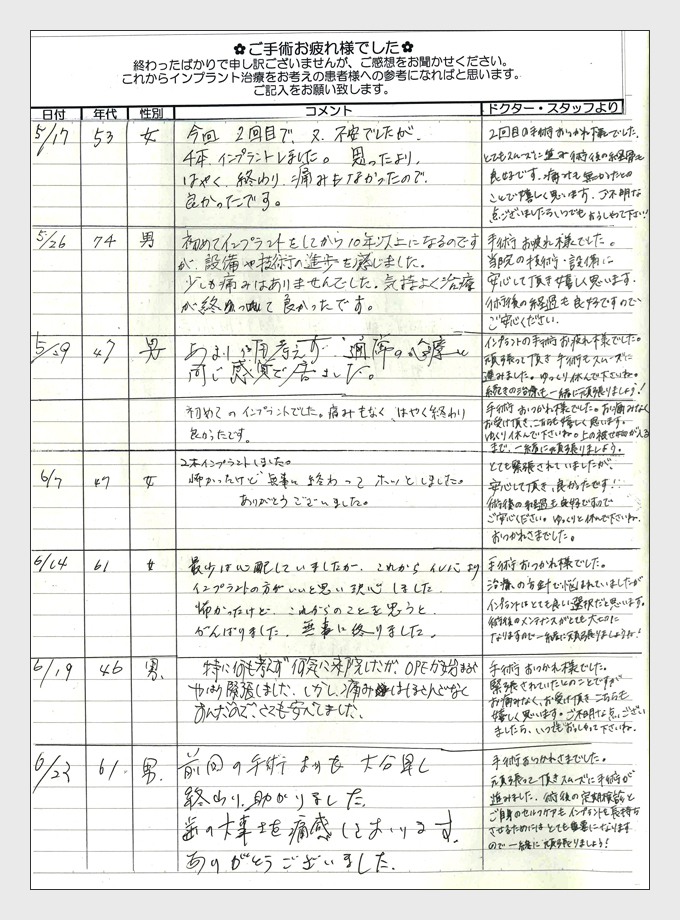 ✿ご手術お疲れ様でした✿
終わったばかりで申し訳ございませんが、ご感想をお聞かせください。
これからインプラント治療をお考えの患者様への参考になればと思います。
ご記入をお願い致します。
日付 年代 性別 コメント ドクター・スタッフより
5/17 53 女
今回 2回目で、又、不安でしたが、
4本、インプラントしました。 思ったより、
はやく、終わり、痛みもなかったので、
良かったです。
2回目の手術おつかれ様でした。
とてもスムーズに 術後の経過も
良好です。痛みも無かったとの
ことで嬉しく思います。ご不明な
点ございましたらいつでもおっしゃって下さい!!
5/26 74 男
初めてインプラントをしてから10年以上になるのです
が、設備や技術の進歩を感じました。
少しも痛みはありませんでした。気持よく治療
が終わって良かったです。
手術お疲れ様でした。
当院の技術・設備に
安心して頂き嬉しく思います。
術後の経過も良好ですので
ご安心ください。
5/29 47 男
あまり 考えず 通常の治療と
同じ感覚で居ました。
インプラントの手術お疲れ様でした。
頑張って頂き手術もスムーズに
進みました。ゆっくり休んで下さいね。
続きの治療も一緒に頑張りましょう!
初めてのインプラントでした。痛みもなく、はやく終わり
良かったです。
手術おつかれ様でした。お痛みなく
お受け頂き、こちらも嬉しく思います。
ゆっくり休んで下さいね。上の被せ物が入る
まで、一緒に頑張りましょう。
6/7 47 女
2本インプラントしました。
怖かったけど無事に終わってホッとしました。
ありがとうございました。
とても緊張されていましたが、
安心して頂き、良かったです!
術後の経過も良好ですので
ご安心ください。ゆっくりと休んで下さいね。
おつかれさまでした。
6/14 61 女
最初は心配していましたが、これから 入れ歯より
インプラントの方がいいと思い決心しました。
怖かったけど、これからのことを思うと、
がんばりました。無事に終りました。
手術おつかれ様でした。
治療の方針で悩まれていましたが
インプラントはとても良い選択だと思います。
術後のメンテナンスがとても大切に
なりますので一緒に頑張りましょうね!
6/19 46 男.
特に何も考えず 何気に来院したが、OPEが始まると
やはり緊張しました。しかし、痛みはほとんどなく
すんだので、とても安心でした。
手術おつかれ様でした。
緊張されていたとのことですが
お痛みなく、お受け頂きこちらも
嬉しく思います。ご不明な点、ござい
ましたら、いつでもおっしゃって下さいね。
6/23 61. 男.
前回の手術よりも大分早く
終わり、助かりました。
歯の大事さを痛感しております。
ありがとうございました.
手術おつかれさまでした。
頑張って頂きスムーズに手術が
進みました。術後の定期検診と
ご自身のセルフケアもインプラントを長持ち
させるためにはとても重要になります
ので一緒に頑張りましょう!